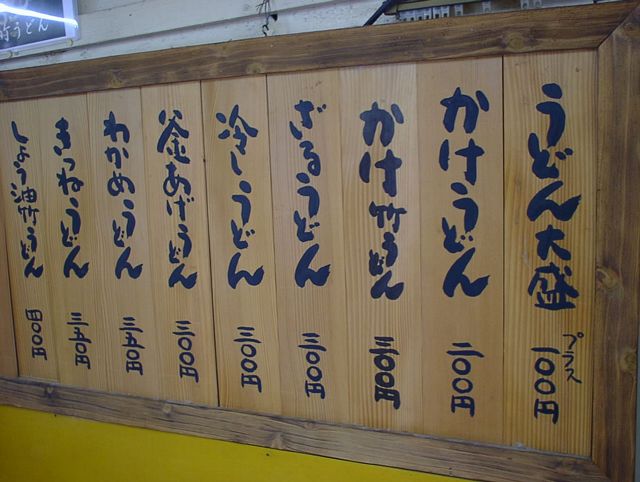 うどん大盛 プラス一〇〇円
かけうどん 二〇〇円
かけ竹うどん 三〇〇円
ざるうどん 三〇〇円
冷しうどん 三〇〇円
釜あげうどん 三〇〇円
わかめうどん 三五〇円
きつねうどん 三五〇円
しょう油竹うどん 四〇〇円
竹うどん